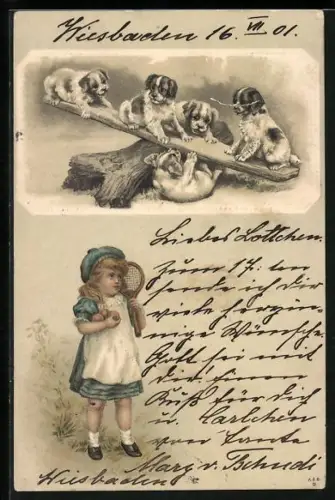 Wiesbaden 16. VII. 01.
Liebes Lottchen.
Zum 17: ten
sende ich dir
viele herzin-
nige Wünsche.
Gott sei mit
dir! Einen
Kuß für dich
u. Carlchen
von Tante
Mary v. Tschudi
Wiesbaden